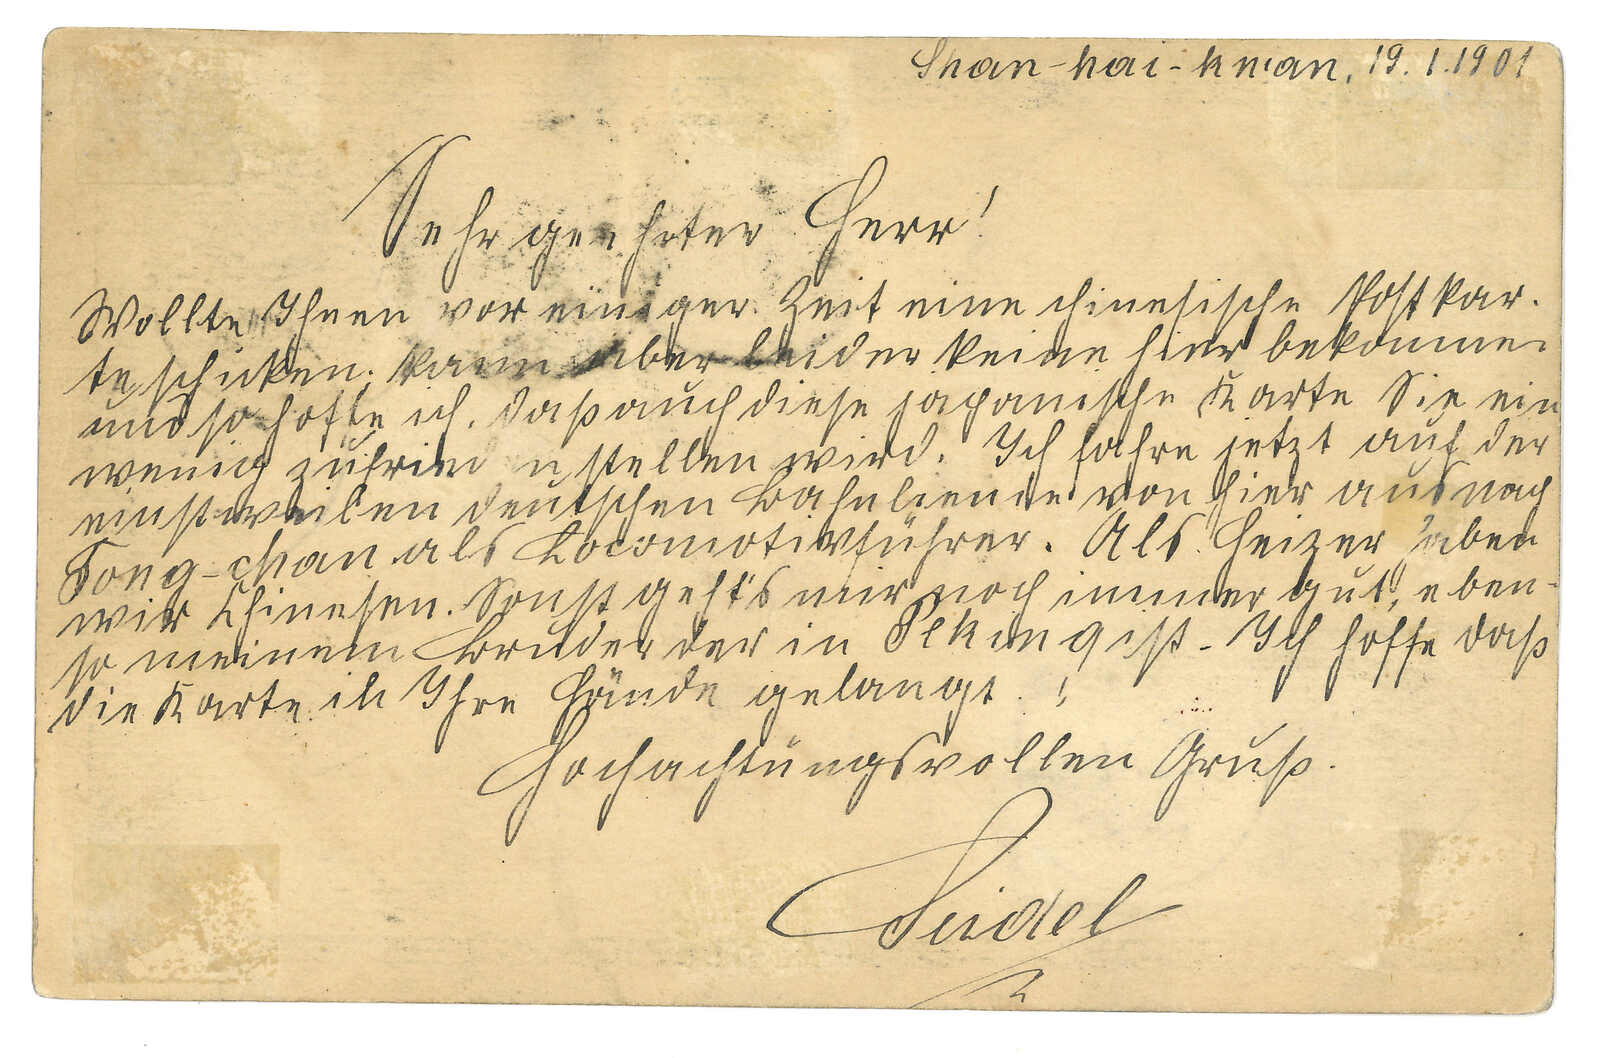 Shan-hai-kwan, 19.1.1901
Sehr geehrter Herr!
Wollte Ihnen vor einiger Zeit eine chinesische Postkar-
te schicken, kann aber leider keine hier bekommen
und so hoffe ich, daß auch diese japanische Karte Sie ein
wenig zufrieden stellen wird. Ich fahre jetzt auf der
einstweilen deutschen Bahnliende von hier aus nach
Tong-chan als Locomotivführer. Als Heizer haben
wir Chinesen. Sonst geht's mir noch immer gut, eben-
so meinem Bruder der in Peking ist. Ich hoffe daß
die Karte in Ihre Hände gelangt!
Hochachtungsvollen Gruß.
Seidel